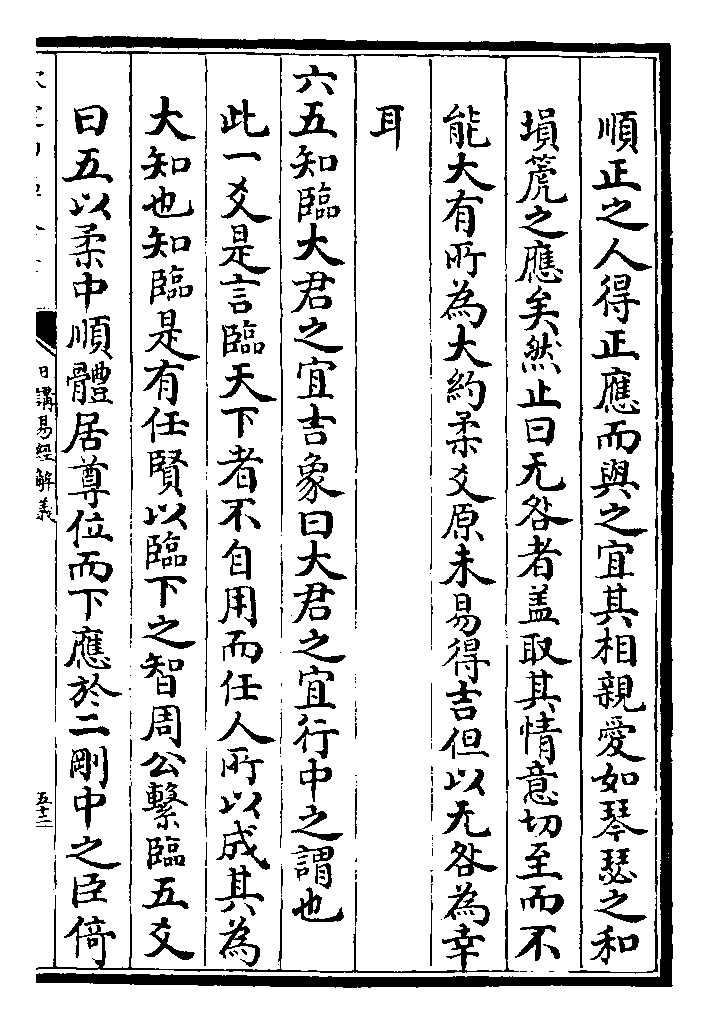 順正之人得正應而與之宜其相親愛如琴瑟之和
塤箎之應矣然止曰无咎者盖取其情意切至而不
能大有所為大約柔爻原未易得吉但以无咎為幸
耳
六五知臨大君之宜吉象曰大君之宜行中之謂也
此一爻是言臨天下者不自用而任人所以成其為
大知也知臨是有任賢以臨下之智周公繫臨五爻
曰五以柔中順體居尊位而下應於二剛中之臣倚
日講易經解義
五十二